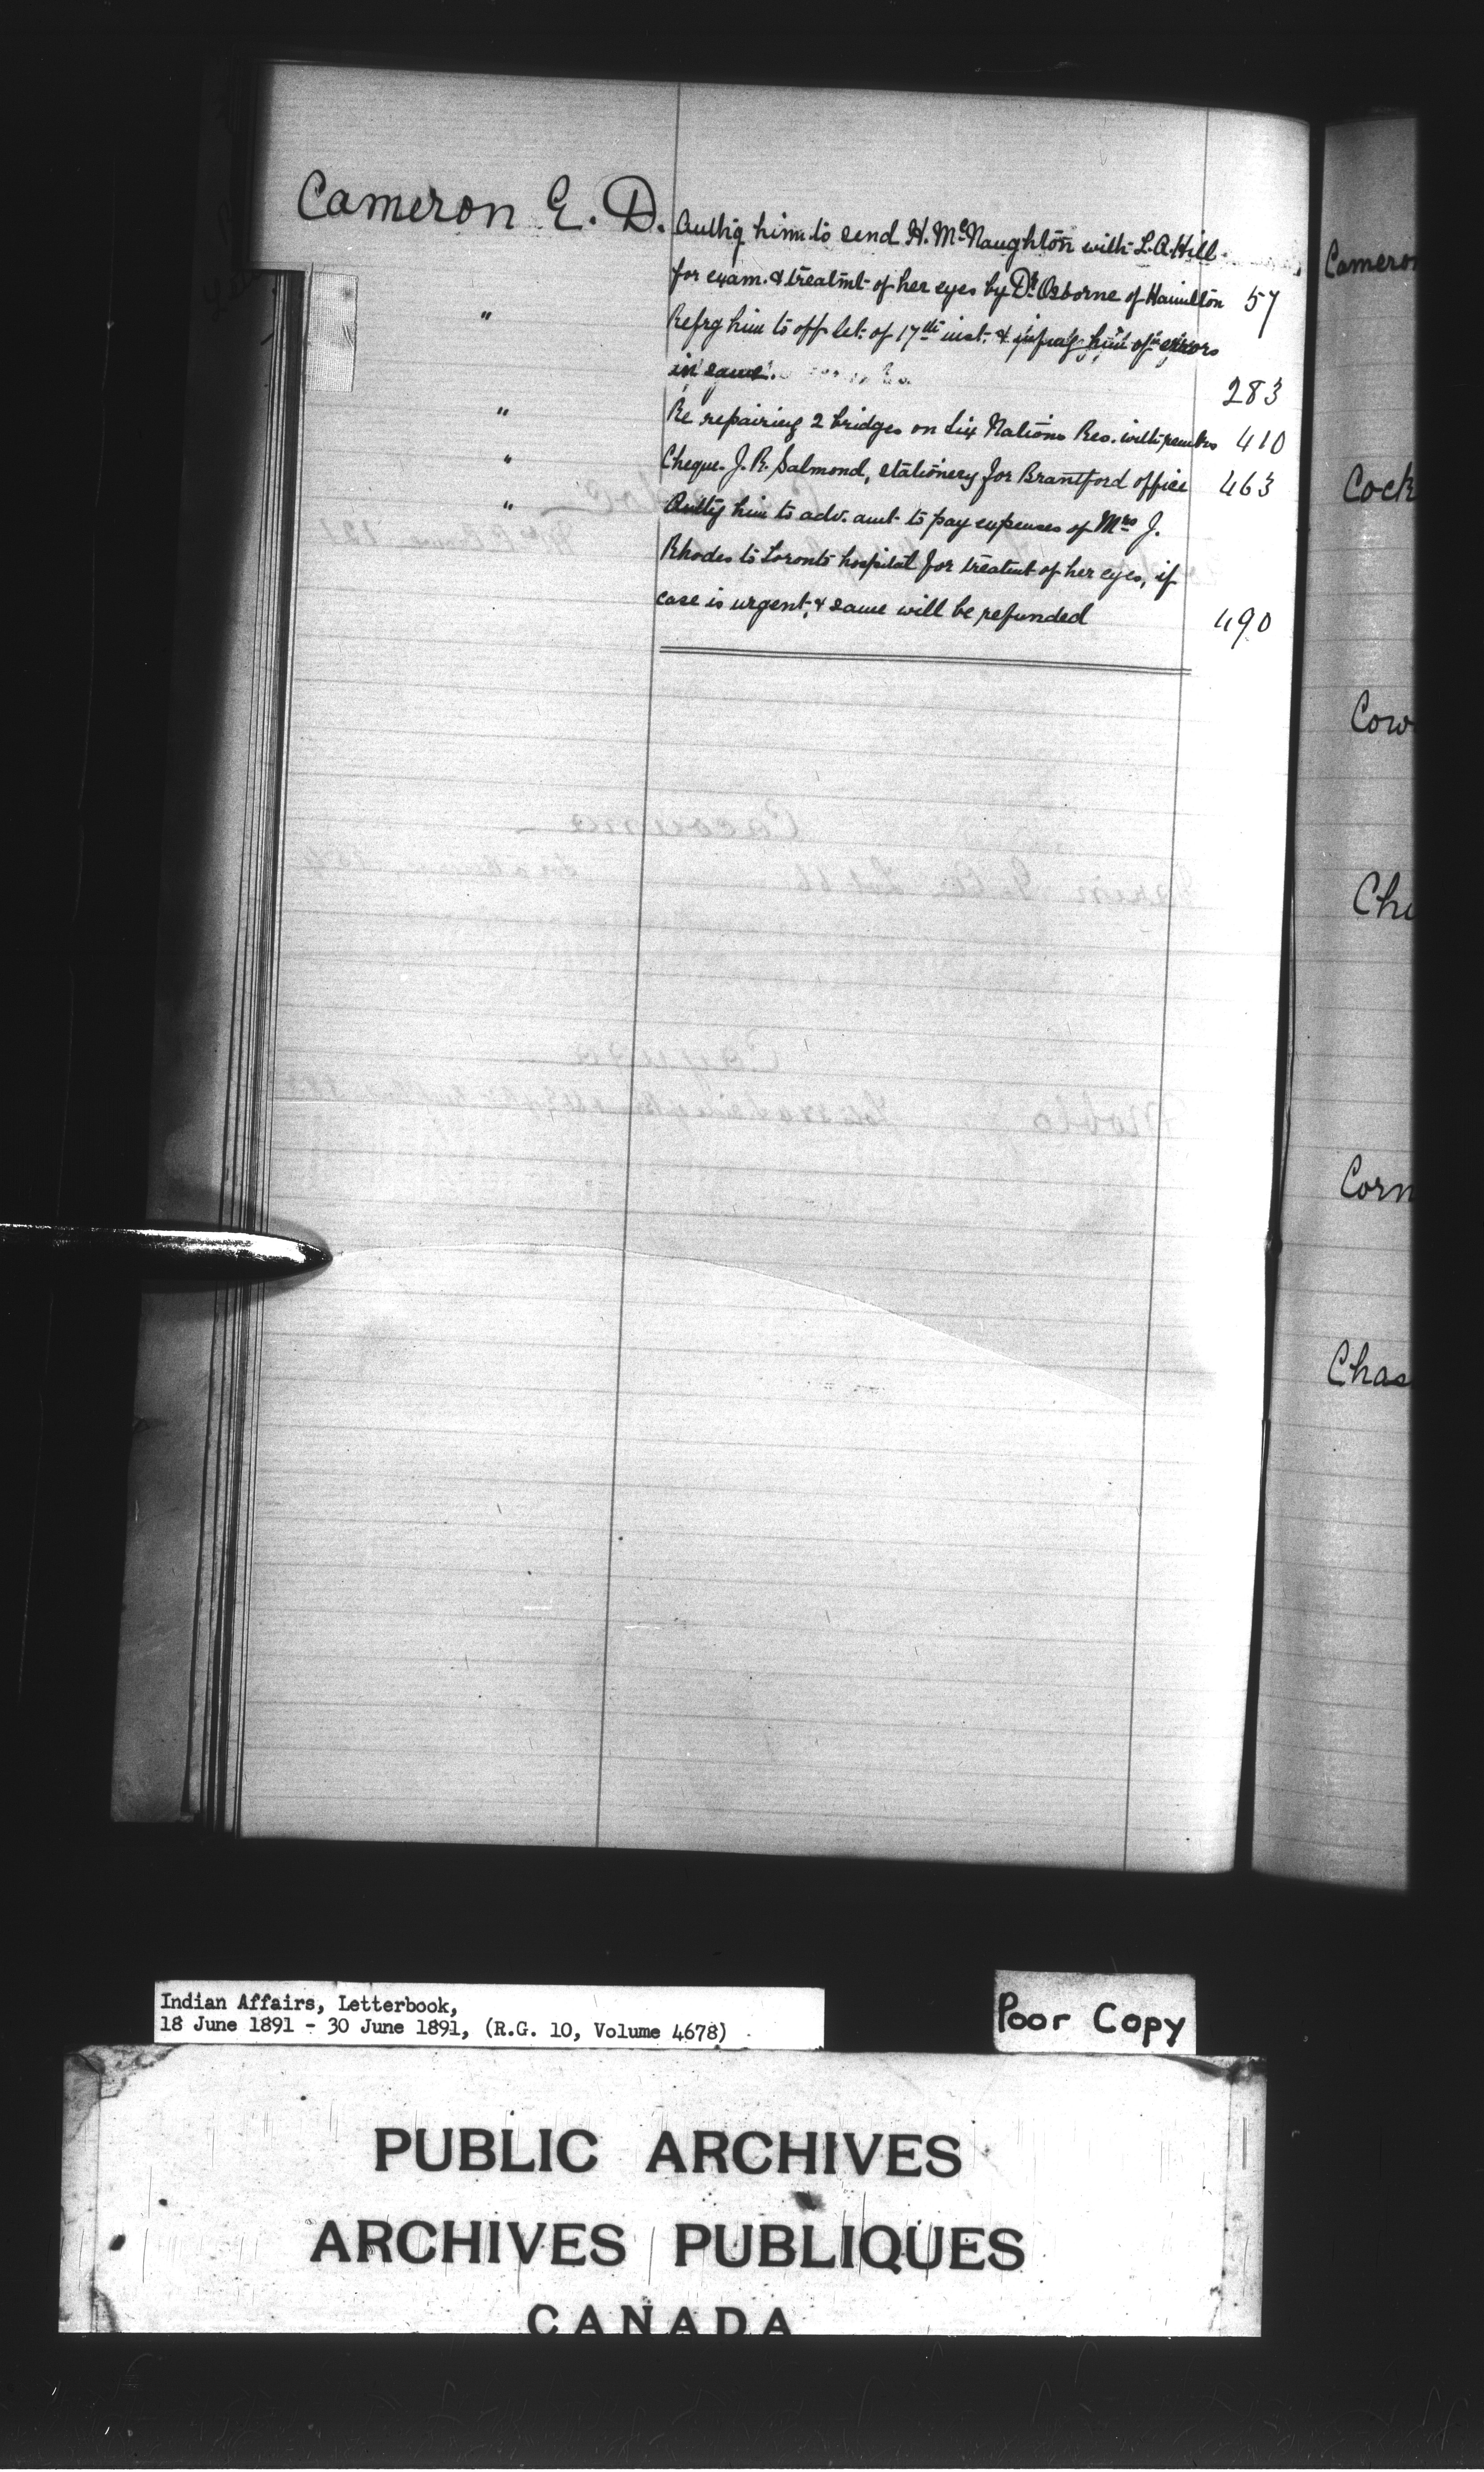 Cameron E. D. Authg him to send H. McNaughton with L. A. Hill
for exam. & treatmt of her eyes by Dr. Osborne of Hamilton 57
" Refrg him to off let. of 17th inst. & infmg him of errors
in same. 283
" Re repairing 2 bridges on Six Nations Res. with 410
" Cheque. J. R. Salmond, stationery for Brantford office 463
" Authg him to adv. amt to pay expenses of Mrs J.
Rhodes to Toronto hospital for treatmt of her eyes, if
case is urgent, & same will be refunded 490
Cameron
Cock
Cow
Corn
Chas
Indian Affairs, Letterbook,
18 June 1891 - 30 June 1891, (R.G. 10, Volume 4678)
Poor Copy
PUBLIC ARCHIVES
ARCHIVES PUBLIQUES
CANADA